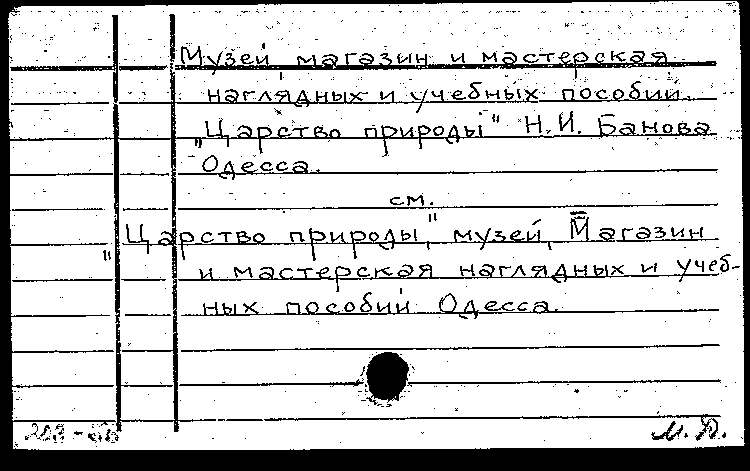 Музей, магазин и мастерская
наглядных и учебных пособий.
„Царство природы" Н.И. Банова
Одесса.
см.
„Царство природы," музей, Магазин
и мастерская наглядных и учеб-
ных пособий Одесса.
М. Д.